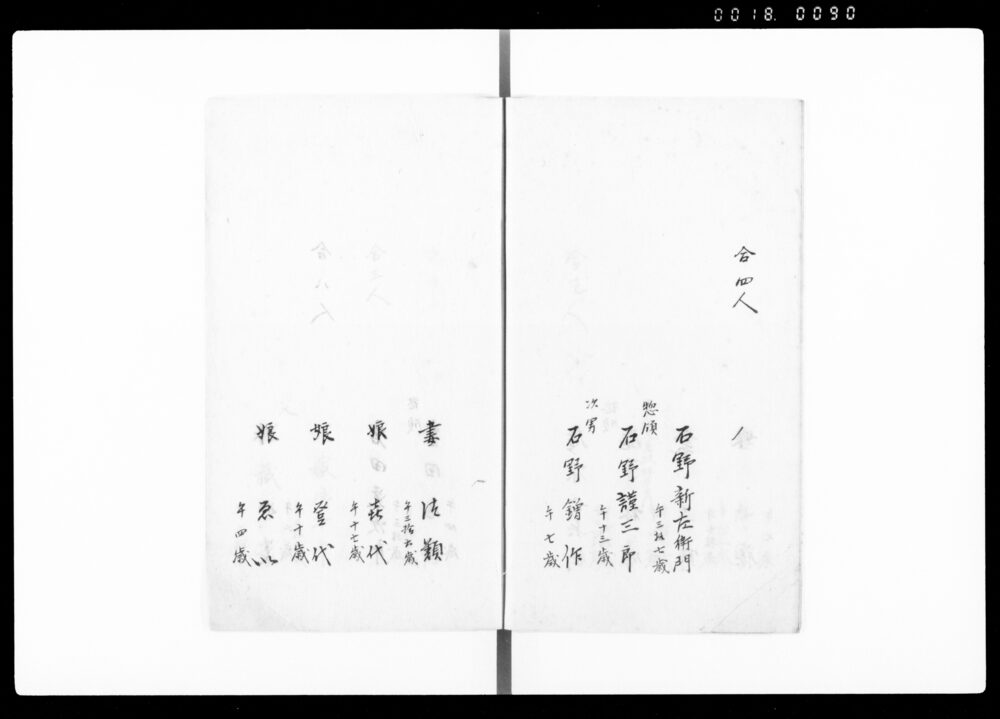 0018. 0090
合四人
石野新左衛門
午三拾七歳
惣領
石野謹三郎
午十三歳
次男
石野鐠作
午七歳
妻
午三拾五歳
娘 喜代
午十七歳
娘 登代
午十歳
娘 ゑい
午四歳